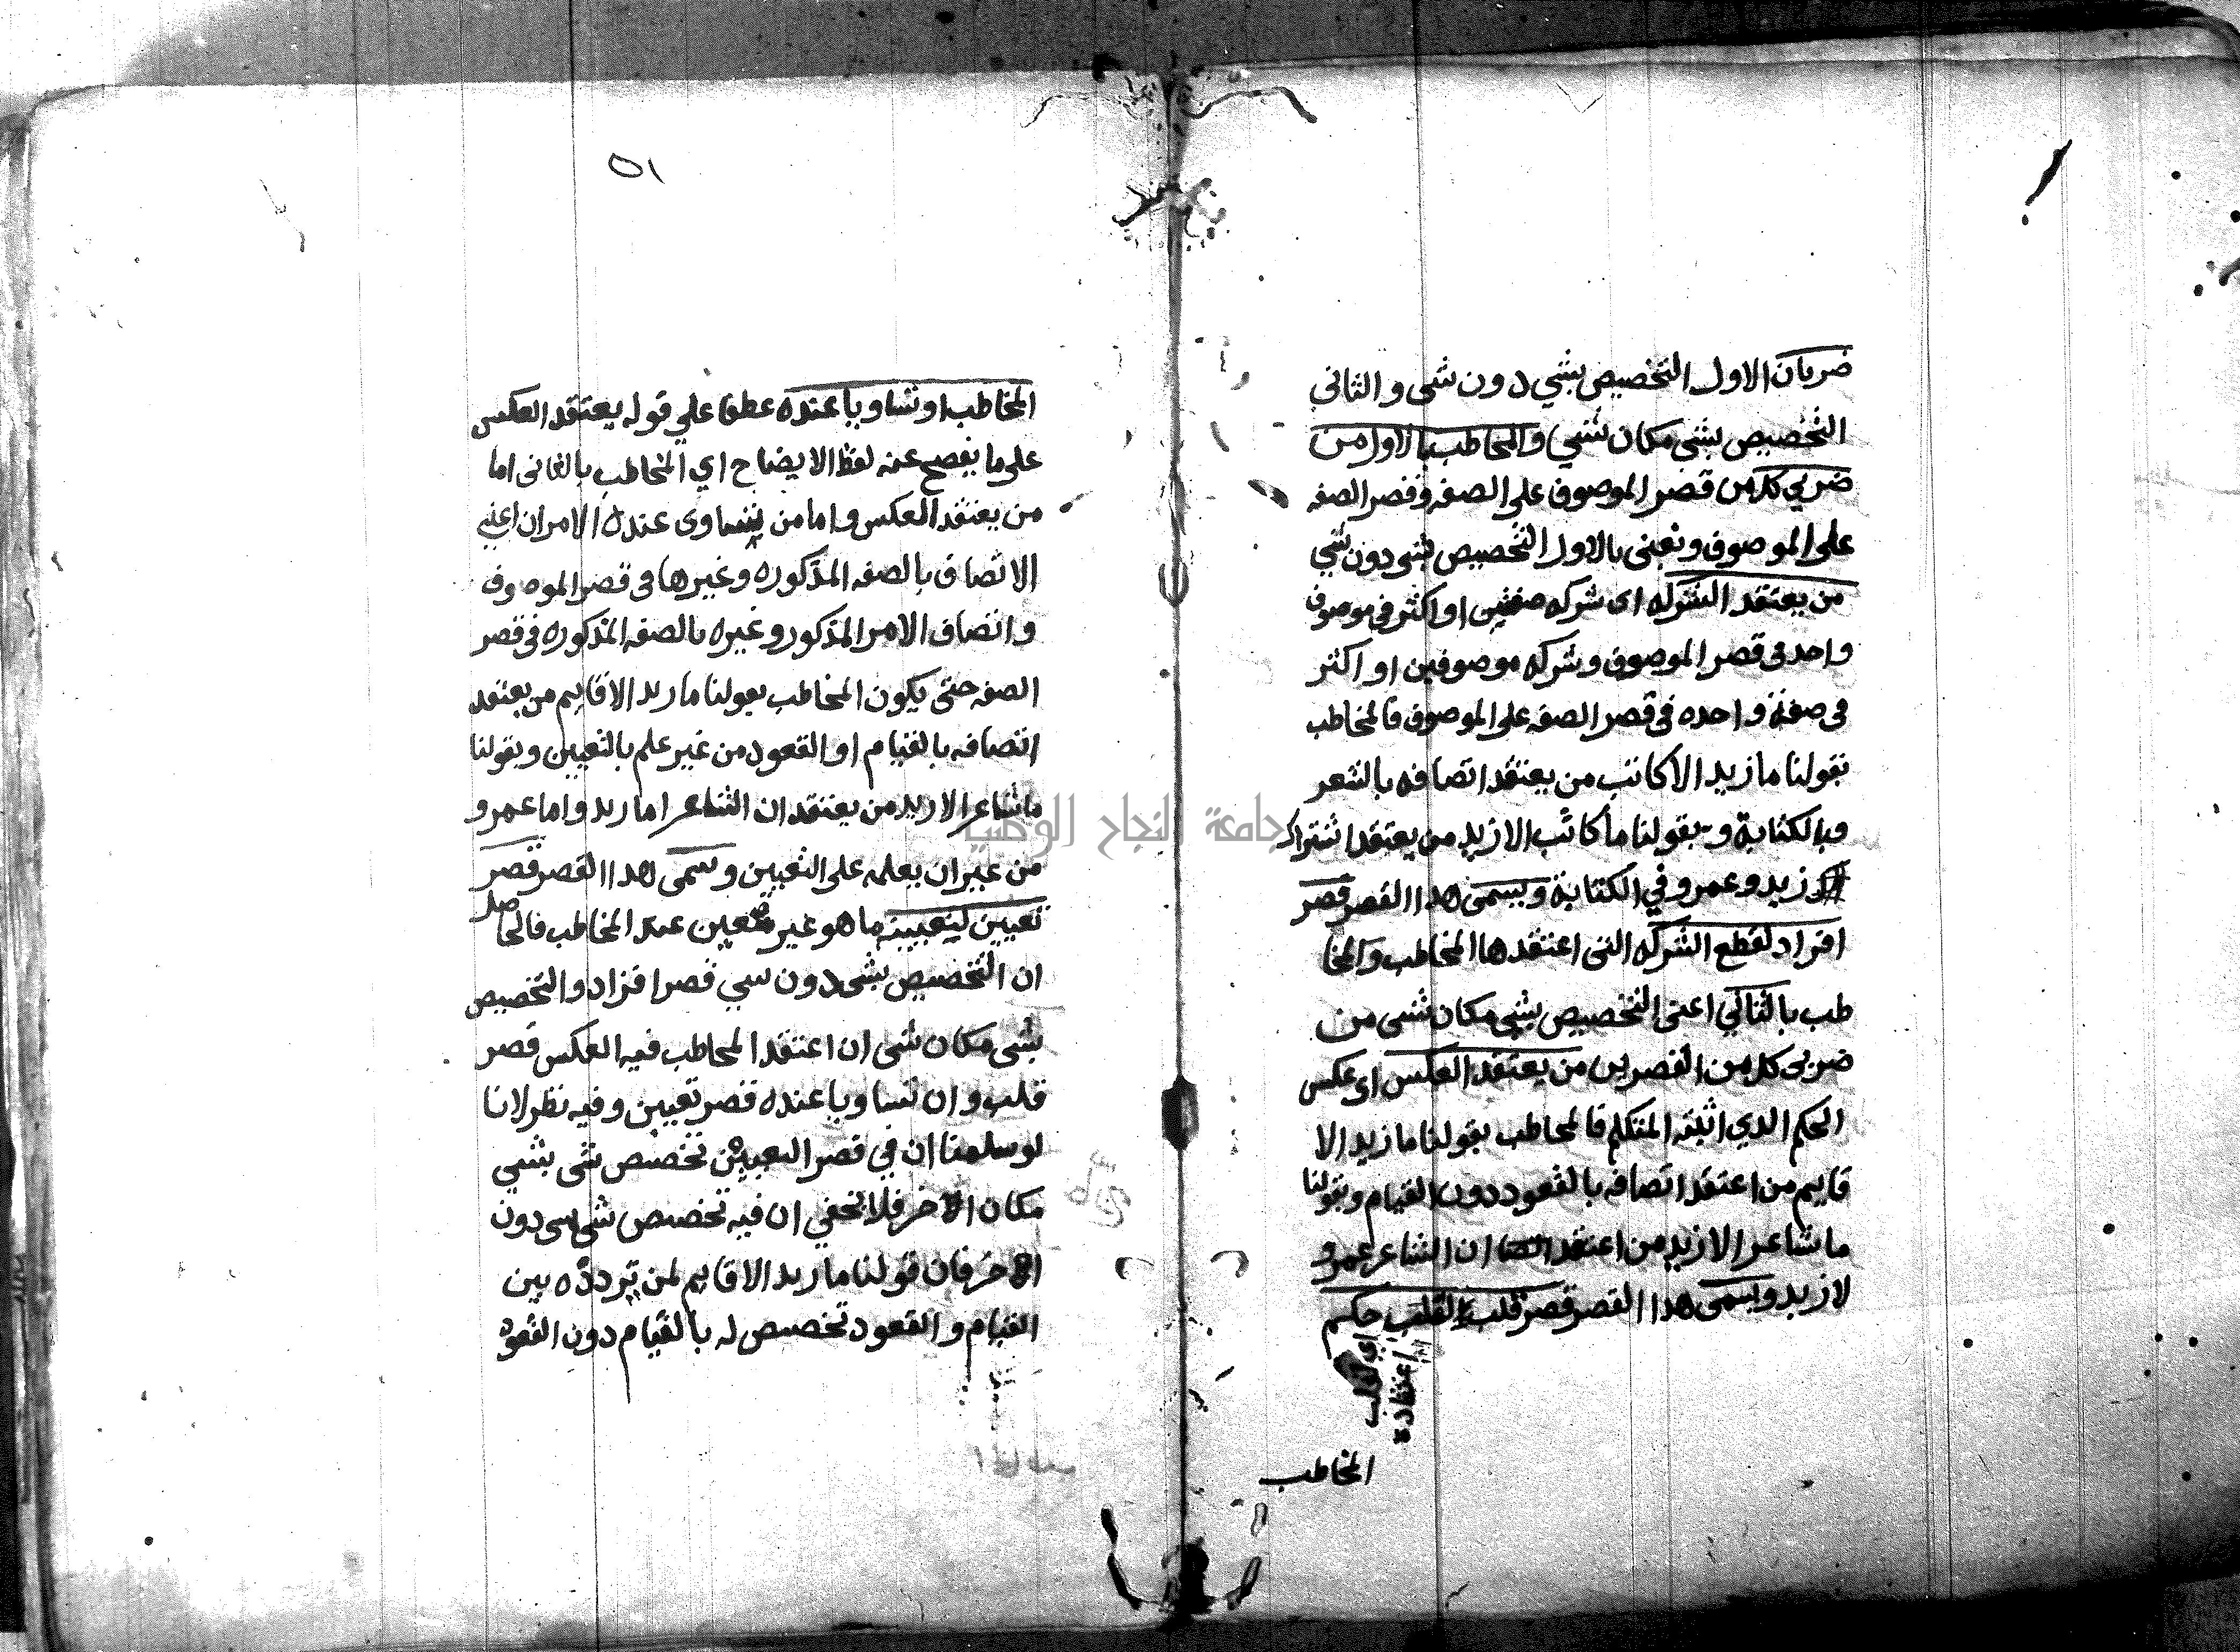 ضربان الاول التخصيص بشي دون شى والثانى
التخصيص بشى مكان شي والمخاطب بالاول من
ضربي كل من قصر الموصوف على الصفه وقصر الصفه
على الموصوف ونعنى بالاول التخصيص بشى دون شي
من يعتقد الشركه اى شركه صفتين او اكثر في موصوف
واحد فى قصر الموصوف وشركه موصوفين او اكثر
فى صفة واحده فى قصر الصفه على الموصوف فالمخاطب
بقولنا ما زيد الا كاتب من يعتقد اتصافه بالشعر
وبالكتابة وبقولنا ما كاتب الا زيد من يعتقد اشتراك
زيد وعمرو في الكتابة ويسمى هدا القصر قصر
افراد لقطع الشركه التى اعتقدها المخاطب والمخا
طب بالثاني اعنى التخصيص بشى مكان شى من
ضربى كل من القصرين من يعتقد العكس اى عكس
الحكم الدي اثبته المتكلم فالمخاطب بقولنا ما زيد الا
قايم من اعتقد اتصافه بالقعود دون القيام وبقولنا
ما شاعر الا زيد من اعتقد ان الشاعر عمرو
لا زيد ويسمى هدا القصر قصر قلب لقلب حكم
اي لقلب
اعتقاده
المخاطب
٥١
المخاطب او تساويا عنده عطف علي قوله يعتقد العكس
على ما يفصح عنه لفظ الايضاح اي المخاطب بالثانى اما
من يعتقد العكس واما من يتساوى عنده الامران اعني
الاتصاف بالصفه المذكوره وغيرها فى قصر الموصوف
واتصاف الامر المذكور وغيره بالصفه المذكوره فى قصر
الصفه حتى يكون المخاطب بقولنا ما زيد الا قايم من يعتقد
اتصافه بالقيام او القعود من غير علم بالتعيين وبقولنا
ما شاعر الا زيد من يعتقد ان الشاعر اما زيد واما عمرو
من غير ان يعلمه على التعيين ويسمى هدا القصر قصر
تعيين لتعيينه ما هو غير معين عند المخاطب فالحاصل
ان التخصيص بشى دون شي قصر افراد والتخصيص
بشى مكان شى ان اعتقد المخاطب فيه العكس قصر
قلب وان تساويا عنده قصر تعيين وفيه نظر لانا
لو سلمنا ان في قصر التعيين تخصيص شى بشي
مكان الاخر فلا يخفي ان فيه تخصيص شى بشى دون
الاخر فان قولنا ما زيد الا قايم لمن تردده بين
القيام والقعود تخصيص له بالقيام دون القعود
جامعة النجاح الوطنية